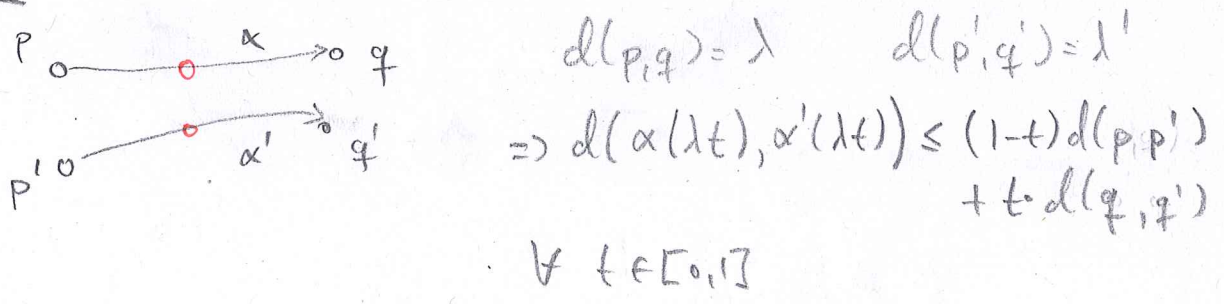 p α q
p' α' q'
d(p,q)=λ d(p',q')=λ'
=> d(α(λt), α'(λt)) ≤ (1-t)d(p,p')
+ t·d(q,q')
∀ t∈[0,1]